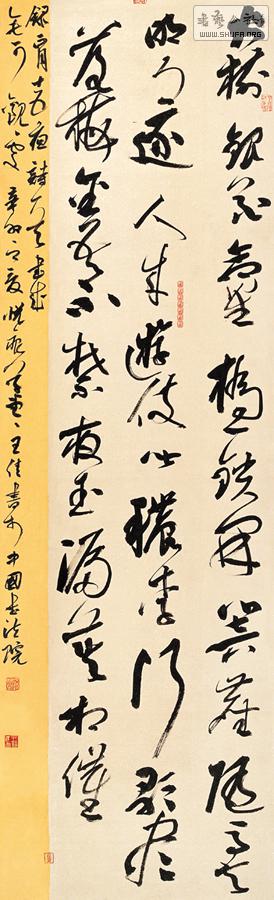 WWW.SHUFA.ORG
火樹銀花合星橋鐵鎖開暗塵隨馬去
明月逐人來遊伎皆穠李行歌盡
落梅金吾不禁夜玉漏莫相催
宵十五夜詩
辛卯之夏 王佳書於中國書法院